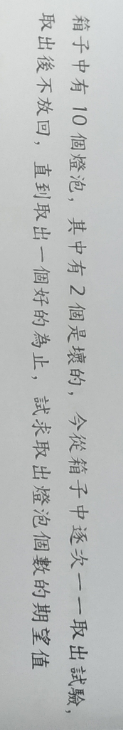 箱子中有 10 個燈泡，其中有 2 個是壞的，今從箱子中逐次一一取出試驗，
取出後不放回，直到取出一個好的為止，試求取出燈泡個數的期望值